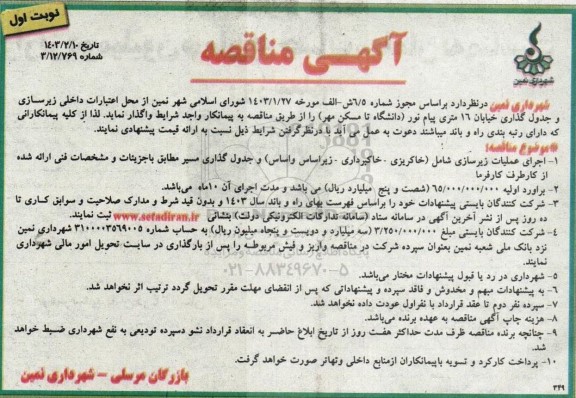 نوبت اول
شهرداری نمین
آگهی مناقصه
تاریخ ۱۴۰۳/۲/۱۰
شماره ۳/۱۲/۷۶۹
شهرداری نمین درنظردارد براساس مجوز شماره ۶/۵ش-الف مورخه ۱۴۰۳/۱/۲۷ شورای اسلامی شهر نمین از محل اعتبارات داخلی زیرسازی
و جدول گذاری خیابان ۱۶ متری پیام نور (دانشگاه تا مسکن مهر) را از طریق مناقصه به پیمانکار واجد شرایط واگذار نماید. لذا از کلیه پیمانکارانی
که دارای رتبه بندی راه و باند میباشند دعوت به عمل می آید با درنظرگرفتن شرایط ذیل نسبت به ارائه قیمت پیشنهادی نمایند.
موضوع مناقصه:
۱- اجرای عملیات زیرسازی شامل (خاکریزی - خاکبرداری - زیراساس واساس) و جدول گذاری مسیر مطابق باجزئیات و مشخصات فنی ارائه شده
از کارطرف کارفرما
۲- برآورد اولیه ۶۵/۰۰۰/۰۰۰/۰۰۰ (شصت و پنج میلیارد ریال) می باشد و مدت اجرای آن ۱۰ماه می‌باشد.
۳- شرکت کنندگان بایستی پیشنهادات خود را براساس فهرست بهای راه و باند سال ۱۴۰۳ و بدون قید شرط و مدارک صلاحیت و سوابق کاری تا
ده روز پس از نشر آخرین آگهی در سامانه ستاد (سامانه تدارکات الکترونیکی دولت) بنشانی www.setadiran.ir ثبت نمایند.
۴- شرکت کنندگان بایستی مبلغ ۳/۲۵۰/۰۰۰/۰۰۰ (سه میلیارد و دویست و پنجاه میلیون ریال) به حساب شماره ۳۱۰۰۰۰۳۵۶۹۰۰۵ شهرداری نمین
نزد بانک ملی شعبه نمین بعنوان سپرده شرکت در مناقصه واریز و فیش مربوطه را پس از بارگذاری در سایت تحویل امور مالی شهرداری
نمایند.
۵- شهرداری در رد یا قبول پیشنهادات مختار می‌باشد.
۶- به پیشنهادات مبهم و مخدوش و فاقد سپرده و پیشنهاداتی که پس از انقضای مهلت مقرر تحویل گردد ترتیب اثر نخواهد شد.
۷- سپرده نفر دوم تا عقد قرارداد با نفراول عودت داده نخواهد شد.
۸- هزینه چاپ آگهی مناقصه به عهده برنده می‌باشد.
۹- چنانچه برنده مناقصه ظرف مدت حداکثر هفت روز از تاریخ ابلاغ حاضر به انعقاد قرارداد نشو دسپرده تودیعی به نفع شهرداری ضبط خواهد
شد.
۱۰- پرداخت کارکرد و تسویه باپیمانکاران ازمنابع داخلی وتهاتر صورت خواهد گرفت.
بازرگان مرسلی - شهرداری نمین
۳۴۹
۰۲۱-۸۸۳۴۹۶۷۰-۵